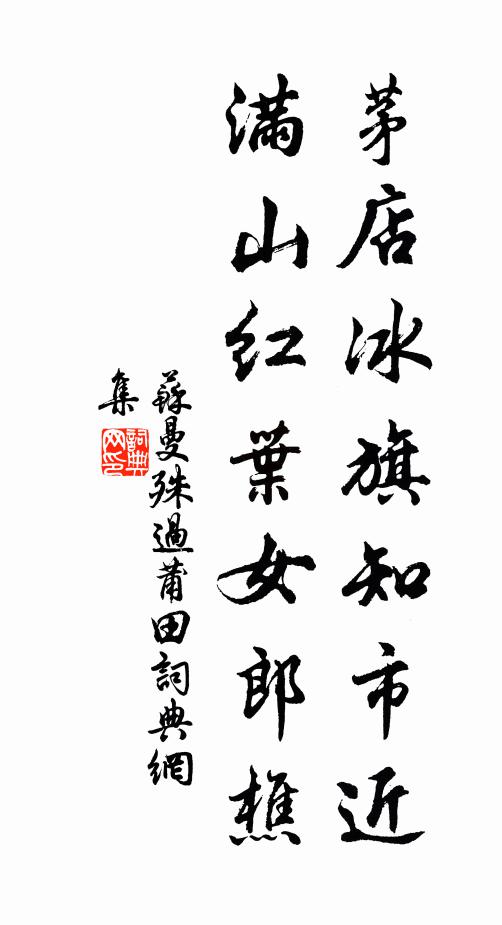 茅店冰旗知市近
满山红葉女郎樵
蘇曼殊過莆田詞典網
集
詞典
网印